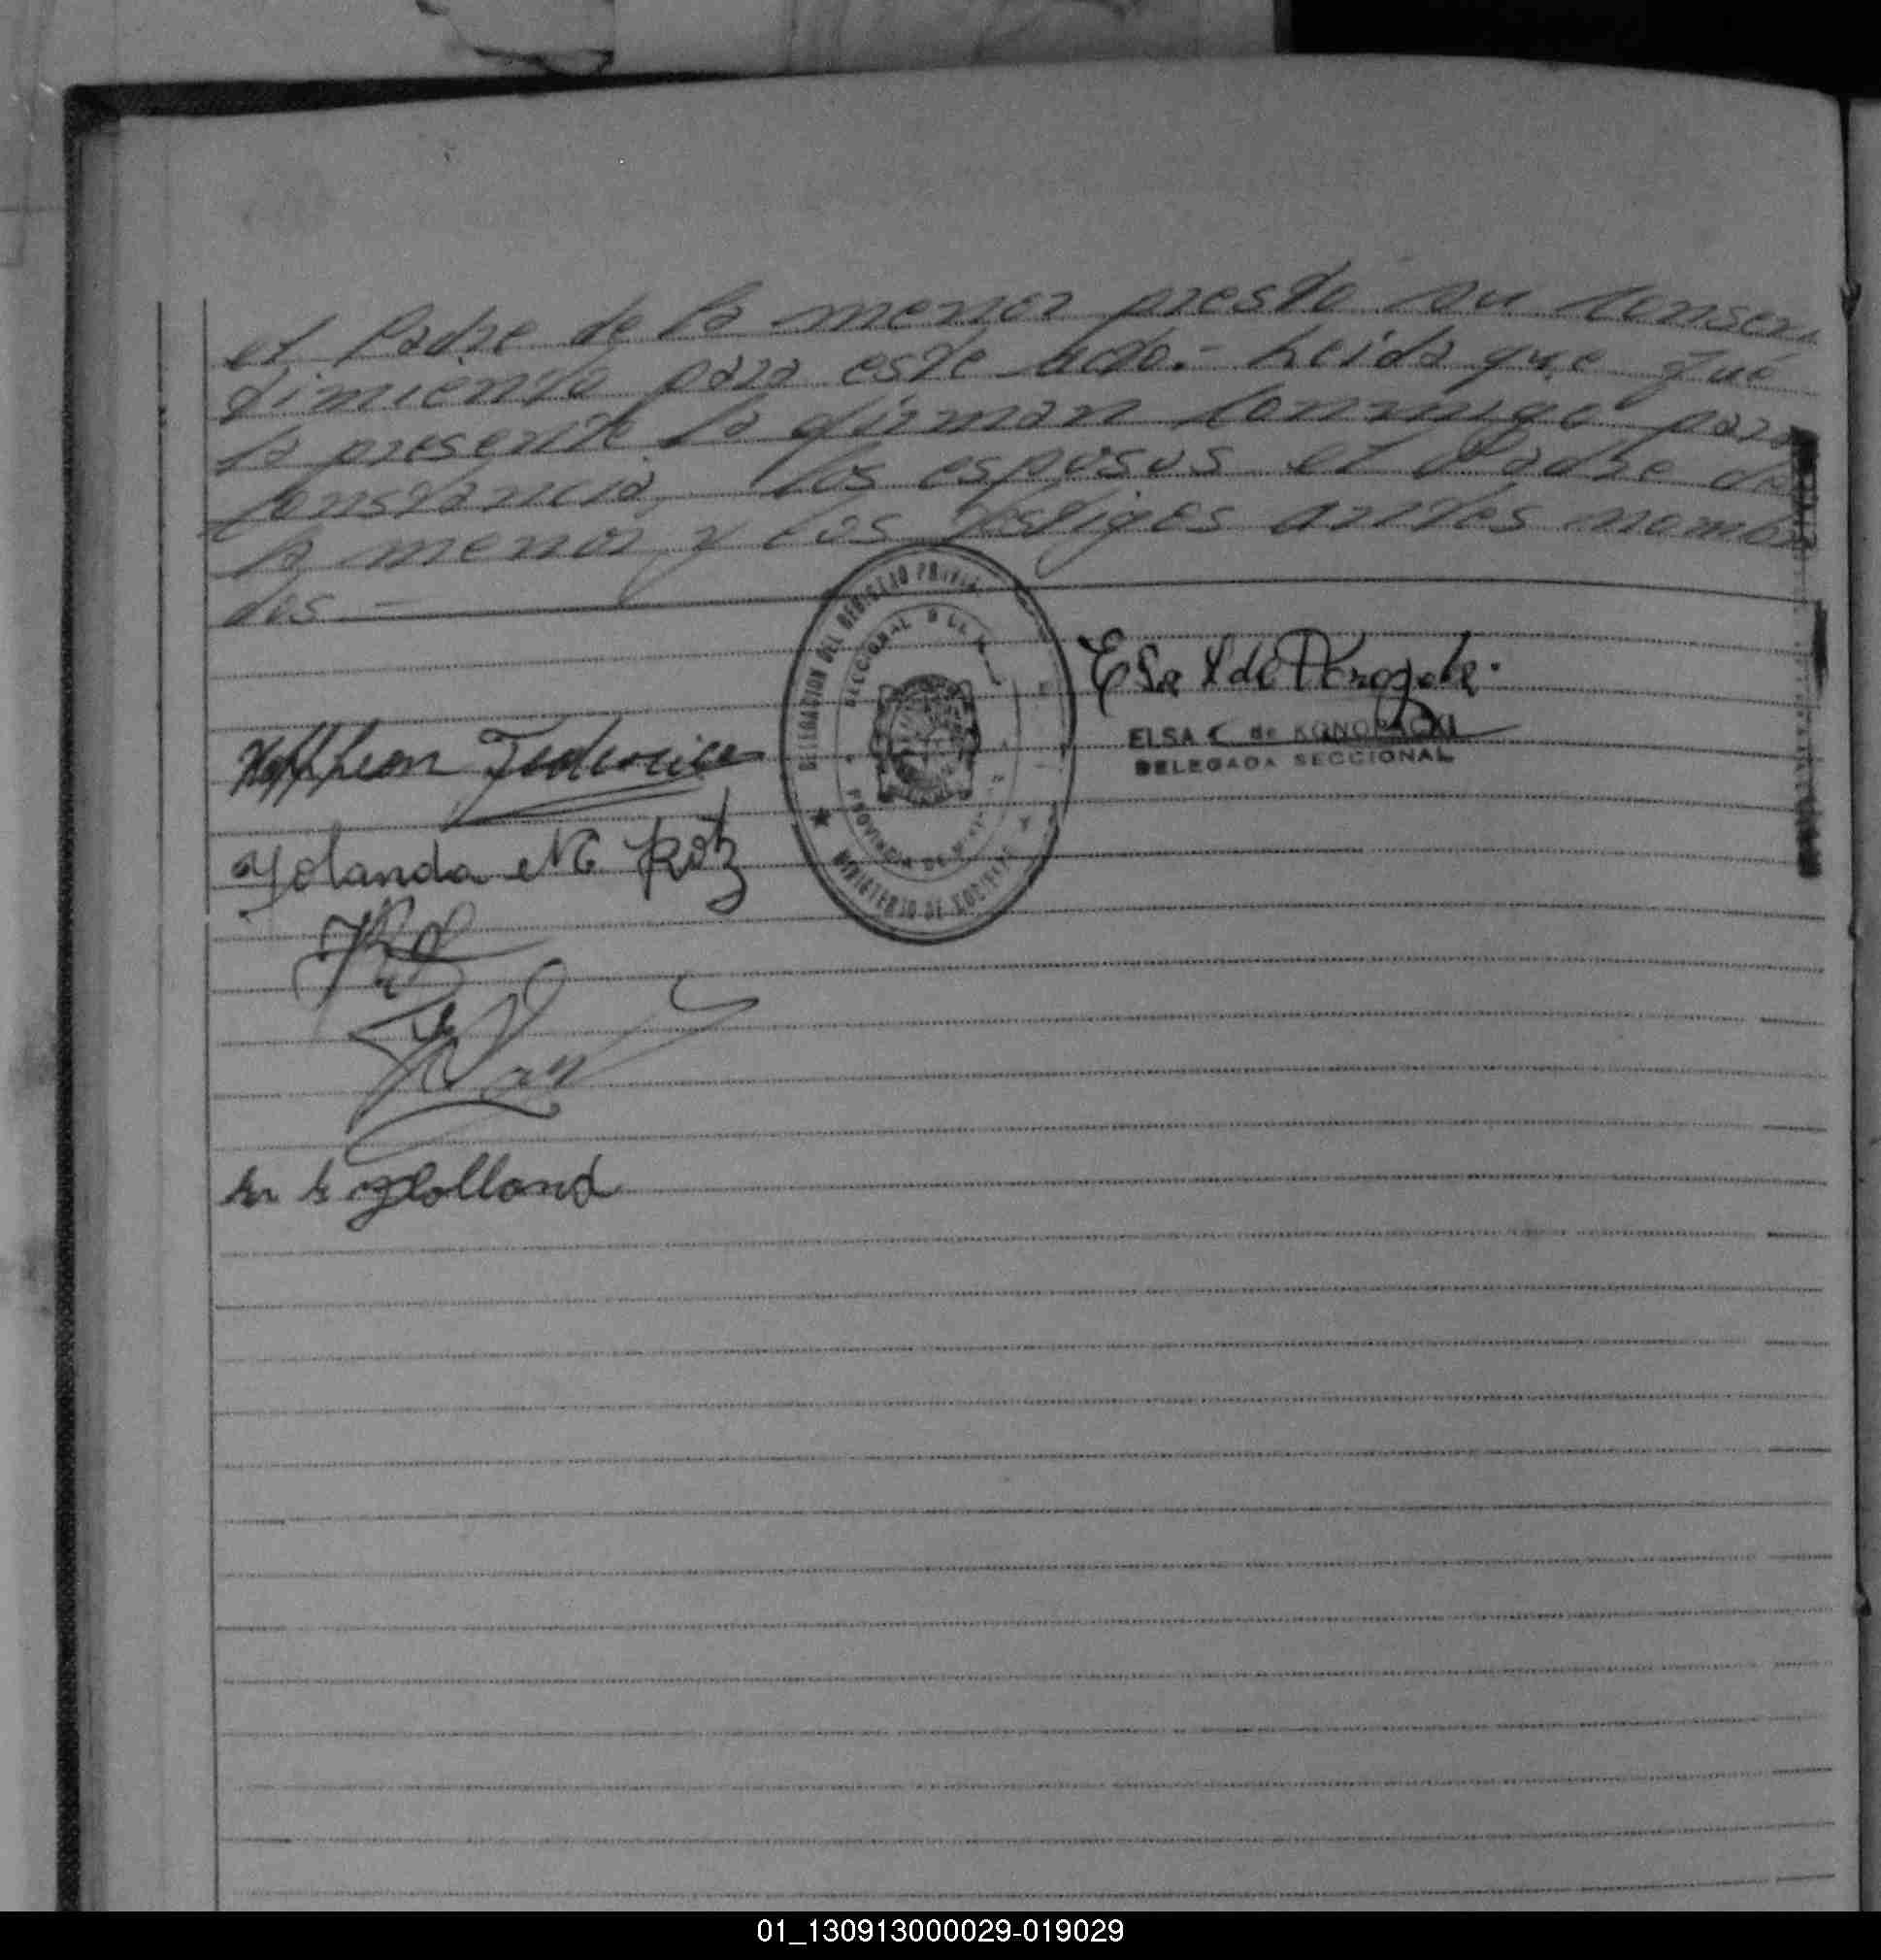 el Padre de la menor presto su consen
timiento para este acto.- Leida que fué
la presente la firman conmigo para
constancia, los esposos el Padre de
la menor, y los testigos antes nombra
dos.-
DELEGACION DEL REGISTRO PROVIN
SECCIONAL
PROVINCIA DE
MINISTERIO DE GOBIERNO
Elsa de
ELSA C de KONOPACKI
DELEGADA SECCIONAL
Federico
Yolanda N
Holland
01_130913000029-019029